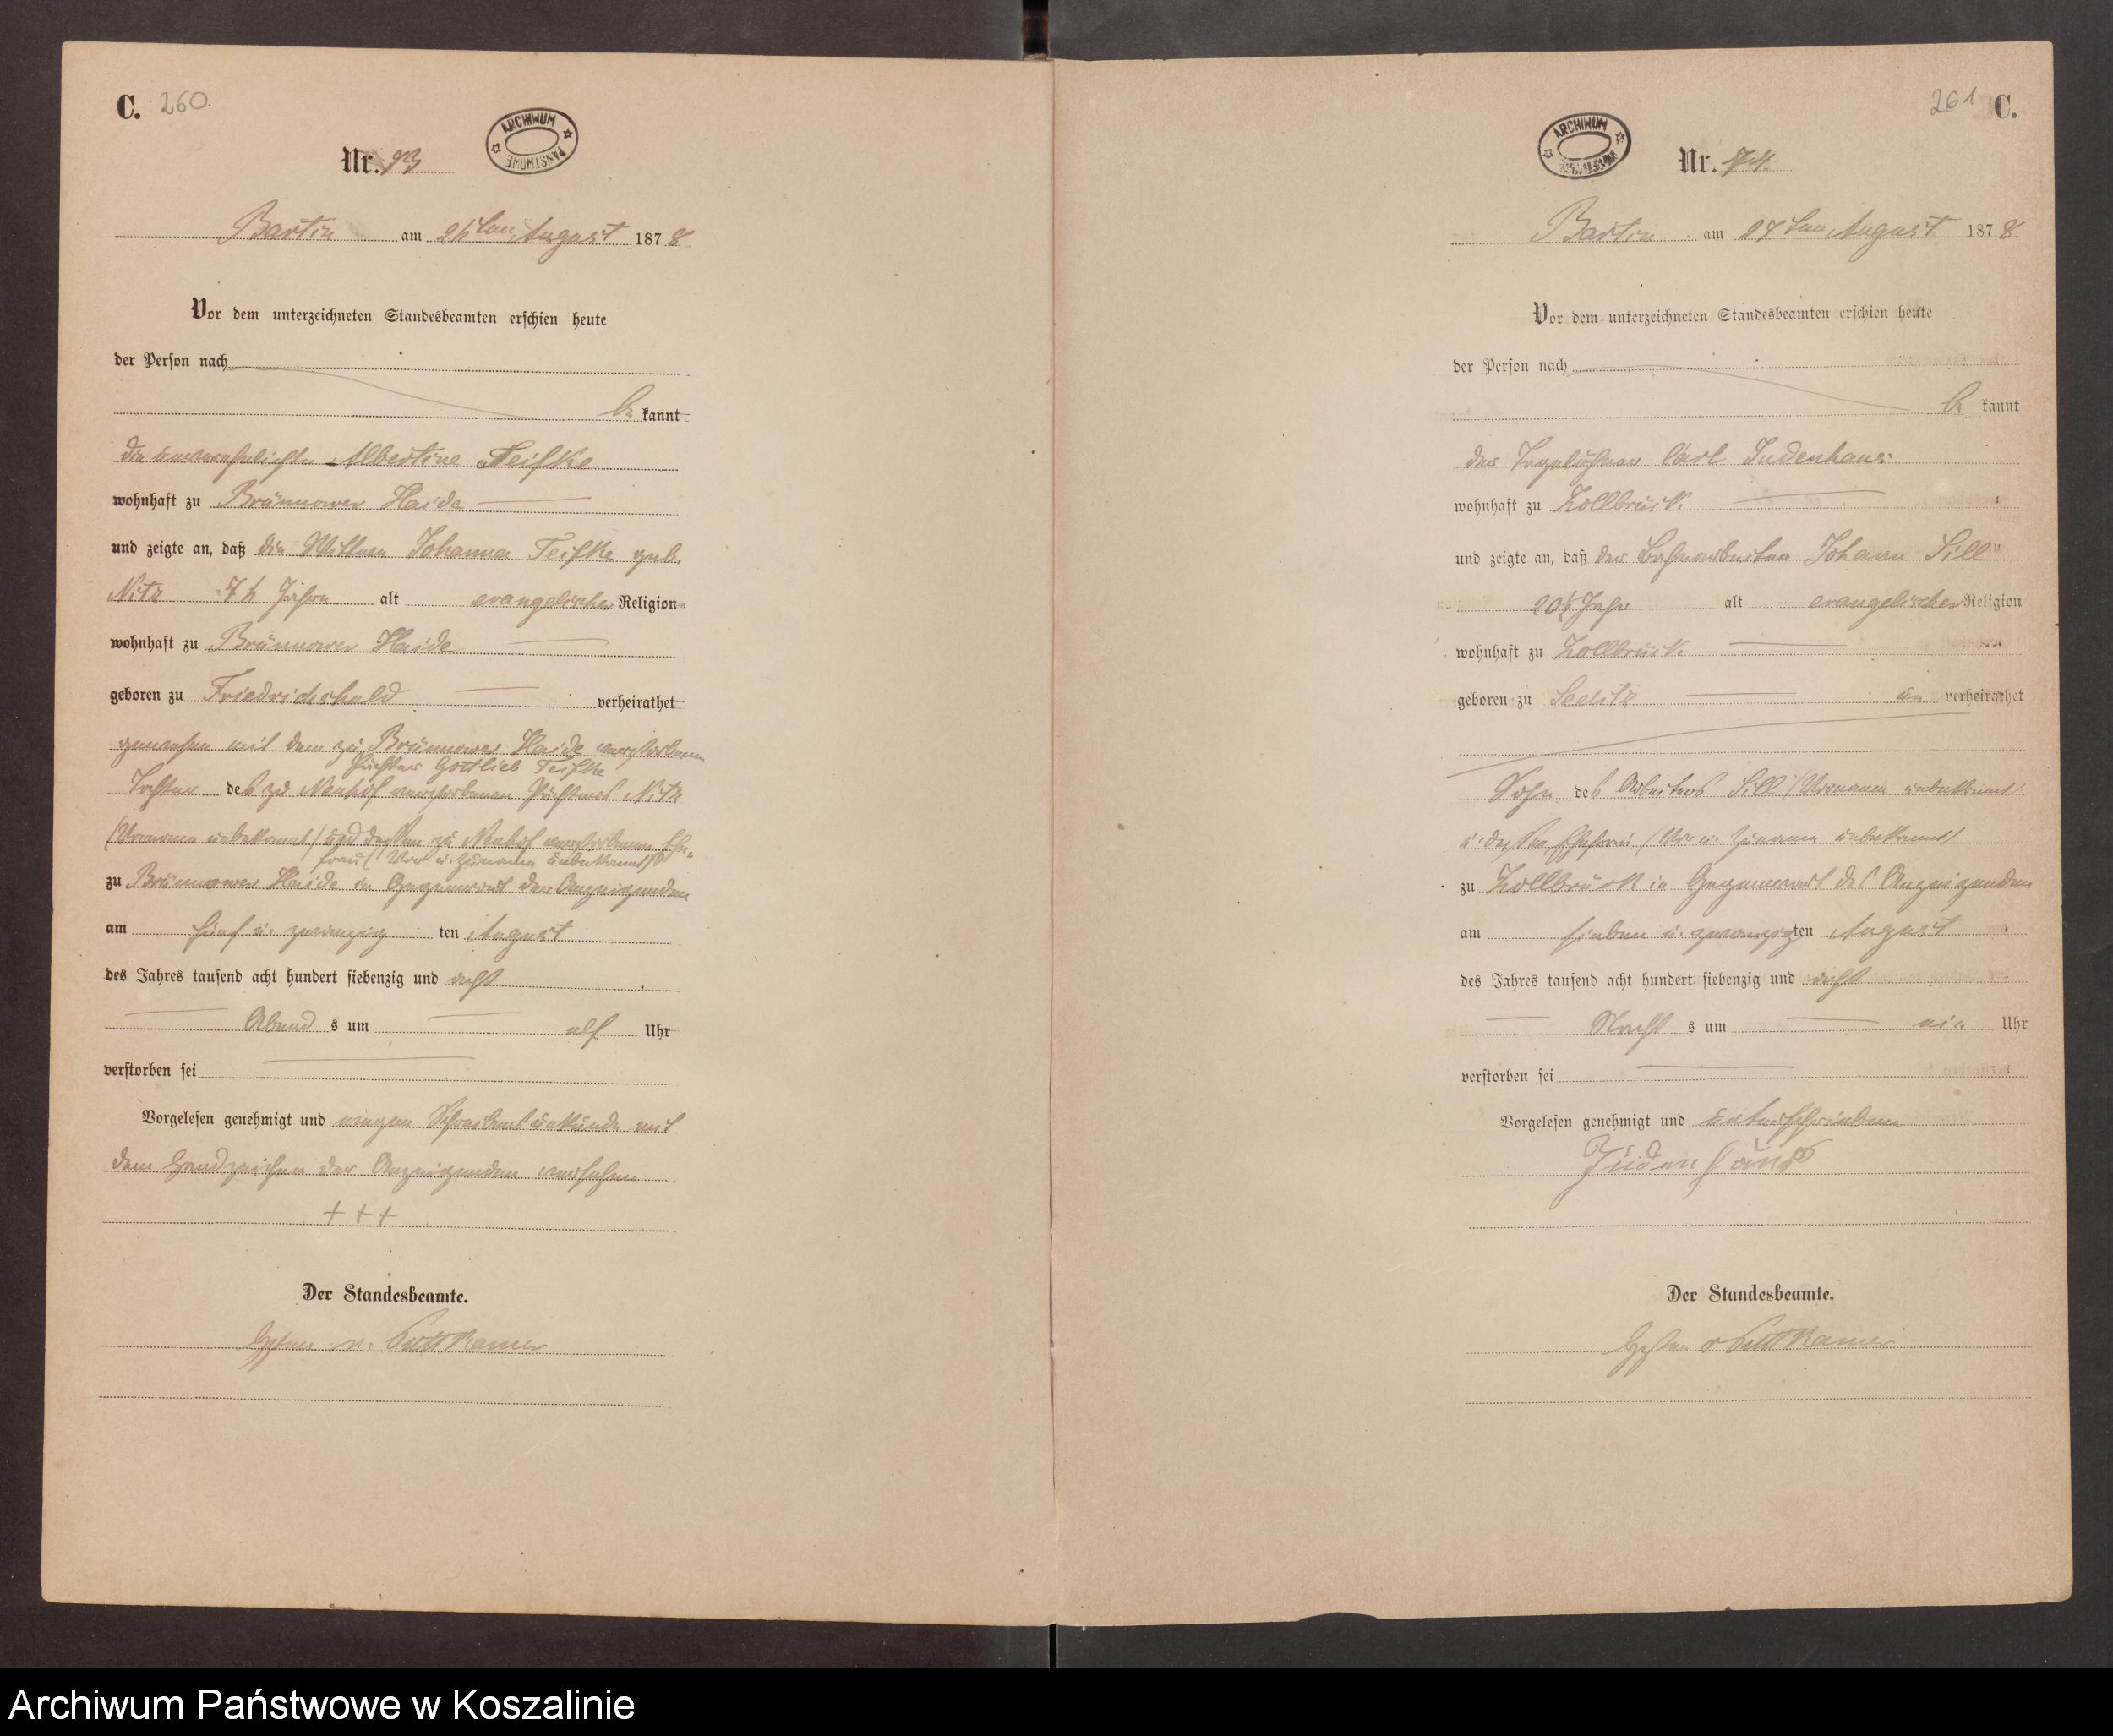 C. 260.
ARCHIWUM PAŃSTWOWE
Nr. 73
Bartin am 26ten August 1878
Vor dem unterzeichneten Standesbeamten erschien heute
der Person nach
be kannt
die unverehelichte Albertine Teifke
wohnhaft zu Brünnower Haide
und zeigte an, daß die Wittwe Johanna Teifke geb.
Nitz 76 Jahre alt evangelischer Religion
wohnhaft zu Brünnower Haide
geboren zu Friedrichshuld verheirathet
gewesen mit dem zu Brünnower Haide verstorbenen
Pächter Gottlieb Teifke
Tochter des zu Neuhof verstorbenen Pächters Nitz
(Vornamen unbekannt) und dessen zu Neuhof verstorbenen Ehe-
frau (Vor u. Zuname unbekannt)
zu Brünnower Haide in Gegenwart der Anzeigenden
am fünf u. zwanzig ten August
des Jahres tausend acht hundert siebenzig und acht
Abend s um elf Uhr
verstorben sei
Vorgelesen genehmigt und wegen Schreibensunkunde mit
dem Handzeichen der Anzeigenden versehen
+++
Der Standesbeamte.
v. Puttkamer
261 C.
ARCHIWUM PAŃSTWOWE
Nr. 74.
Bartin am 27ten August 1878.
Vor dem unterzeichneten Standesbeamten erschien heute
der Person nach
be kannt
der Tagelöhner Carl Judenhaus
wohnhaft zu Zollbrück
und zeigte an, daß der Bahnarbeiter Johann Sill
20½ Jahr alt evangelischer Religion
wohnhaft zu Zollbrück
geboren zu Seelitz un verheirathet
Sohn des Arbeiters Sill (Vornamen unbekannt)
u. dessen Ehefrau (Vor u. Zuname unbekannt)
zu Zollbrück in Gegenwart des Anzeigenden
am sieben u. zwanzigten August
des Jahres tausend acht hundert siebenzig und acht
Nacht s um ein Uhr
verstorben sei
Vorgelesen genehmigt und unterschrieben
Judenhaus
Der Standesbeamte.
v Puttkamer
Archiwum Państwowe w Koszalinie